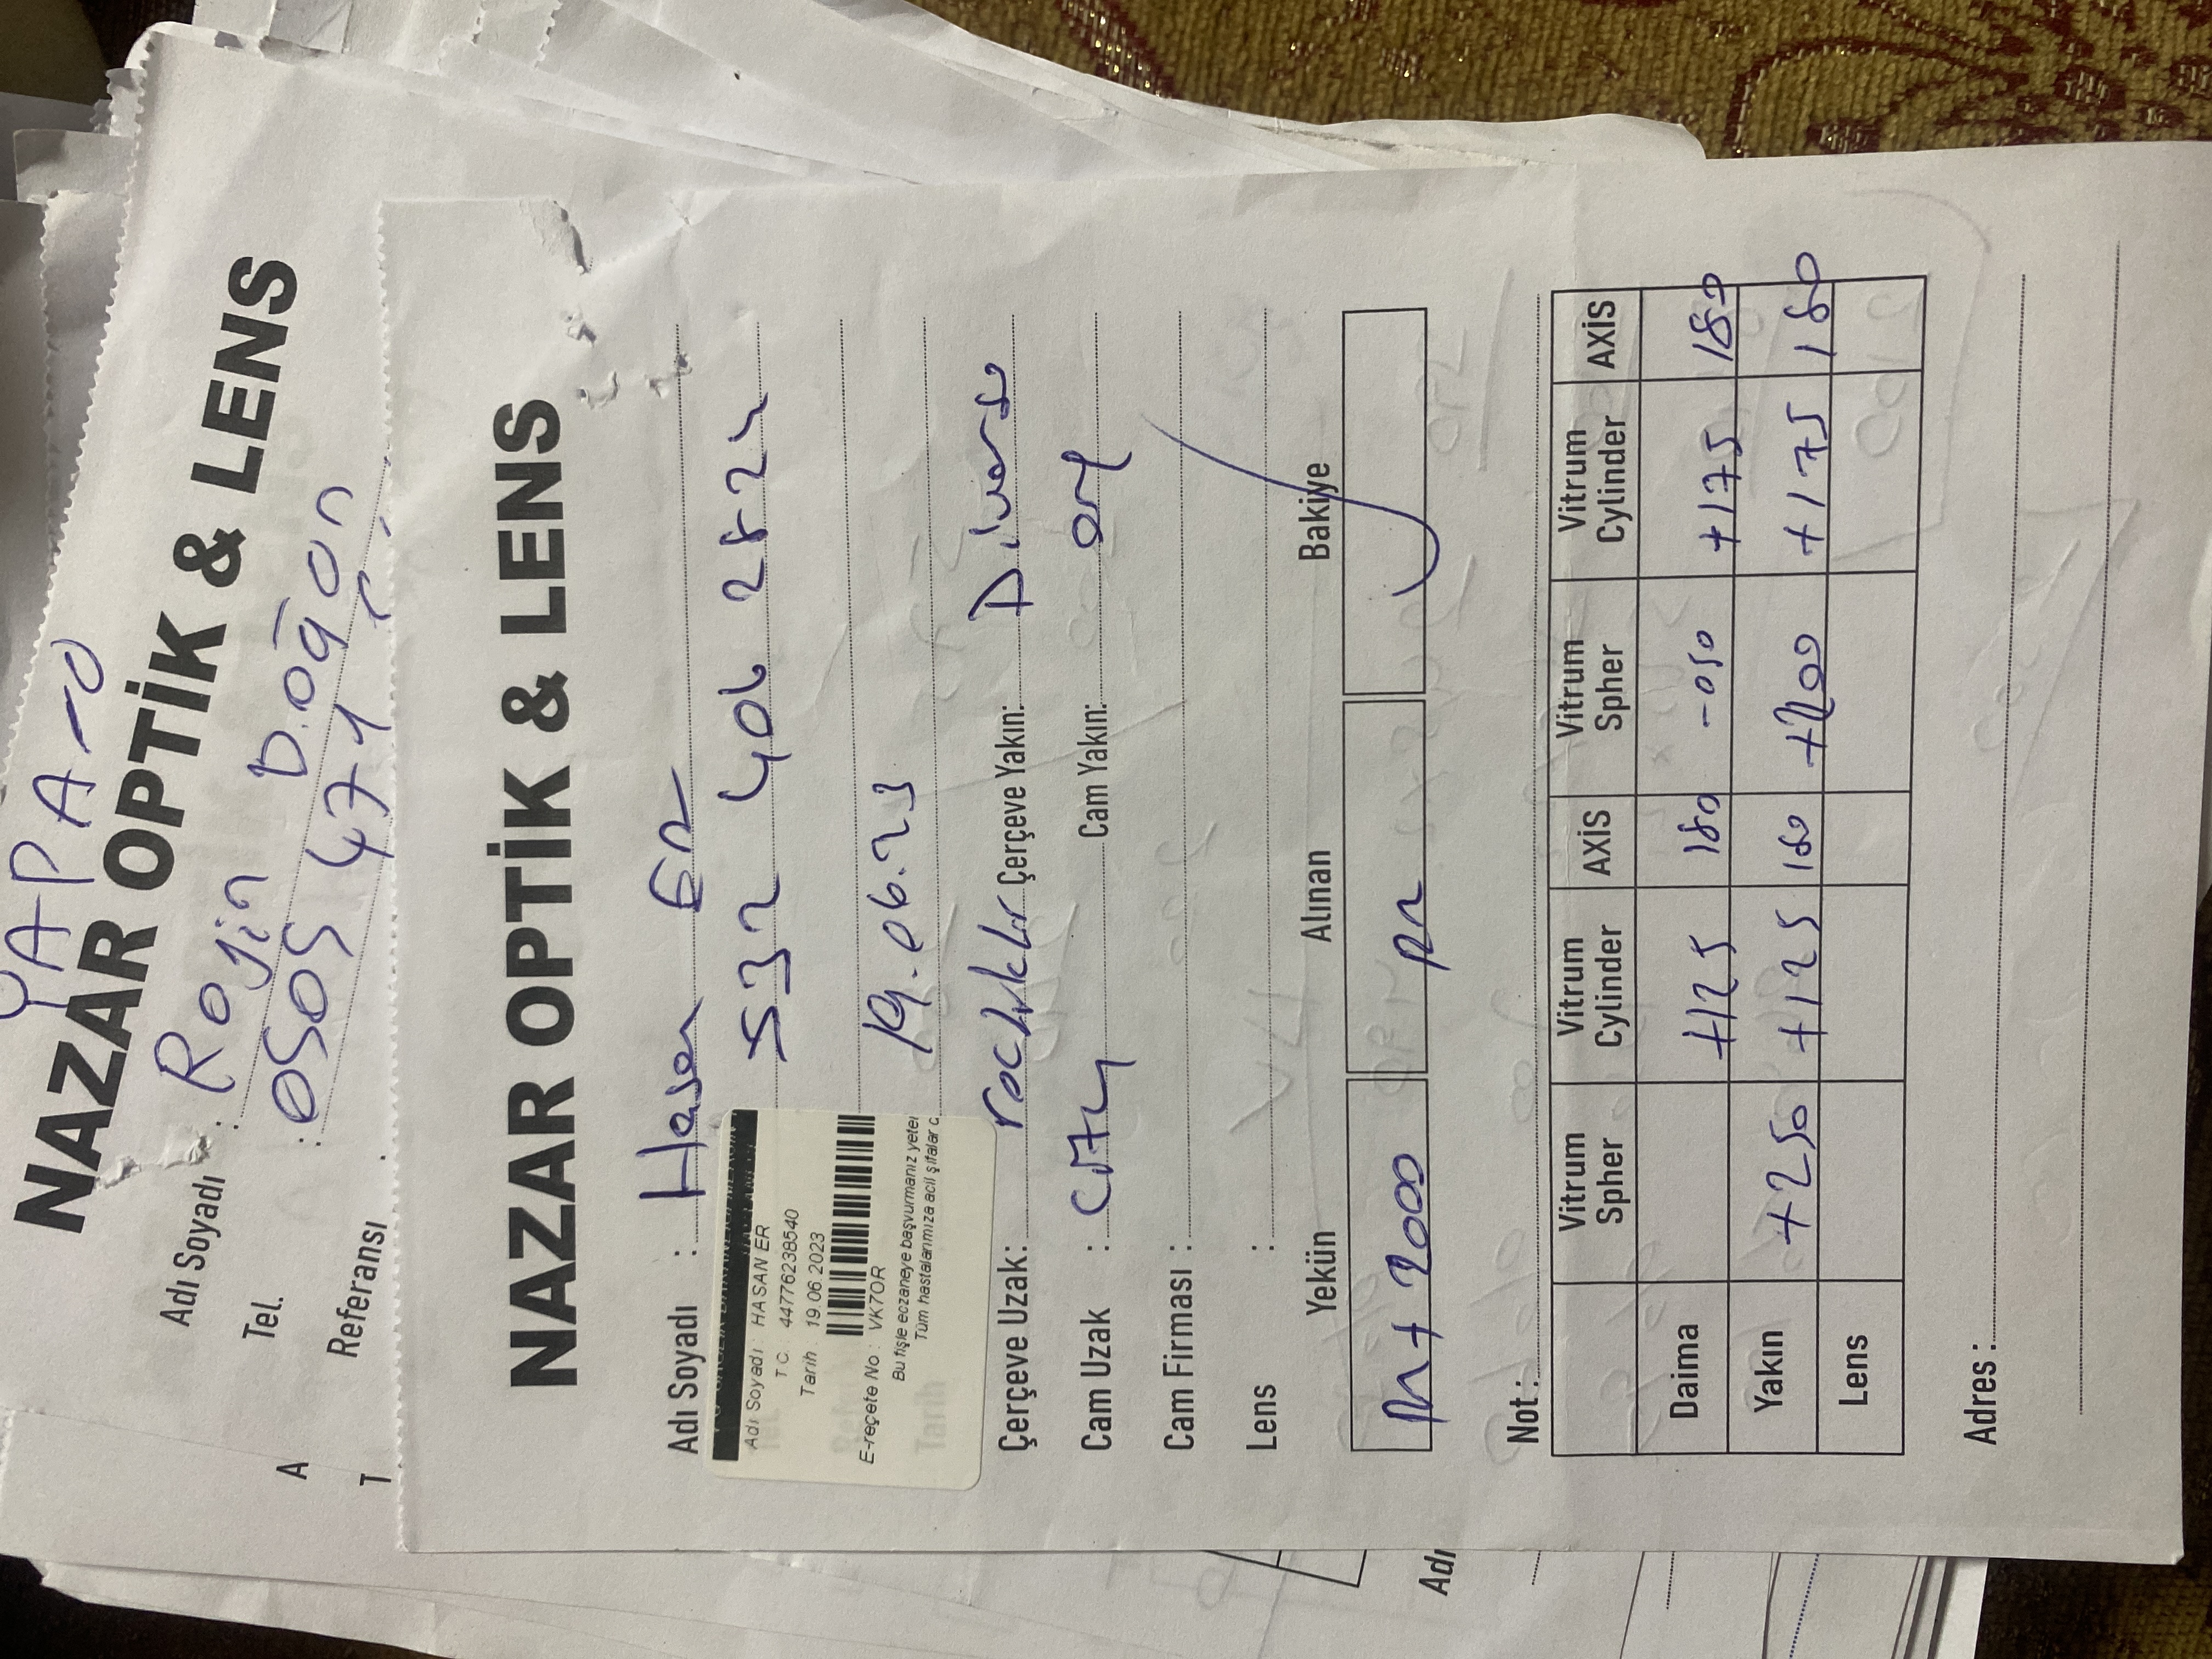 YAPA
NAZAR OPTİK & LENS
Adı Soyadı : Rojin Doğan
Tel. : 0505 471
Referansı :
A
T
NAZAR OPTİK & LENS
Adı Soyadı : Hasan ER
532 406 2824
Adı Soyadı : HASAN ER
T.C. 44776238540
Tarih : 19.06.2023
E-reçete No : VK7OR
Bu fişle eczaneye başvurmanız yeter
Tüm hastalarımıza acil şifalar d
Tarih 19.06.23
Çerçeve Uzak: Çerçeve Yakın: Diverso
Cam Uzak : Cam Yakın:
Cam Firması :
Lens :
Yekün Alınan Bakiye
2000
Adı
Not :
Vitrum Spher Vitrum Cylinder AXİS Vitrum Spher Vitrum Cylinder AXİS
Daima +125 180 -050 +175 180
Yakın +250 +125 180 +200 +175 180
Lens
Adres :